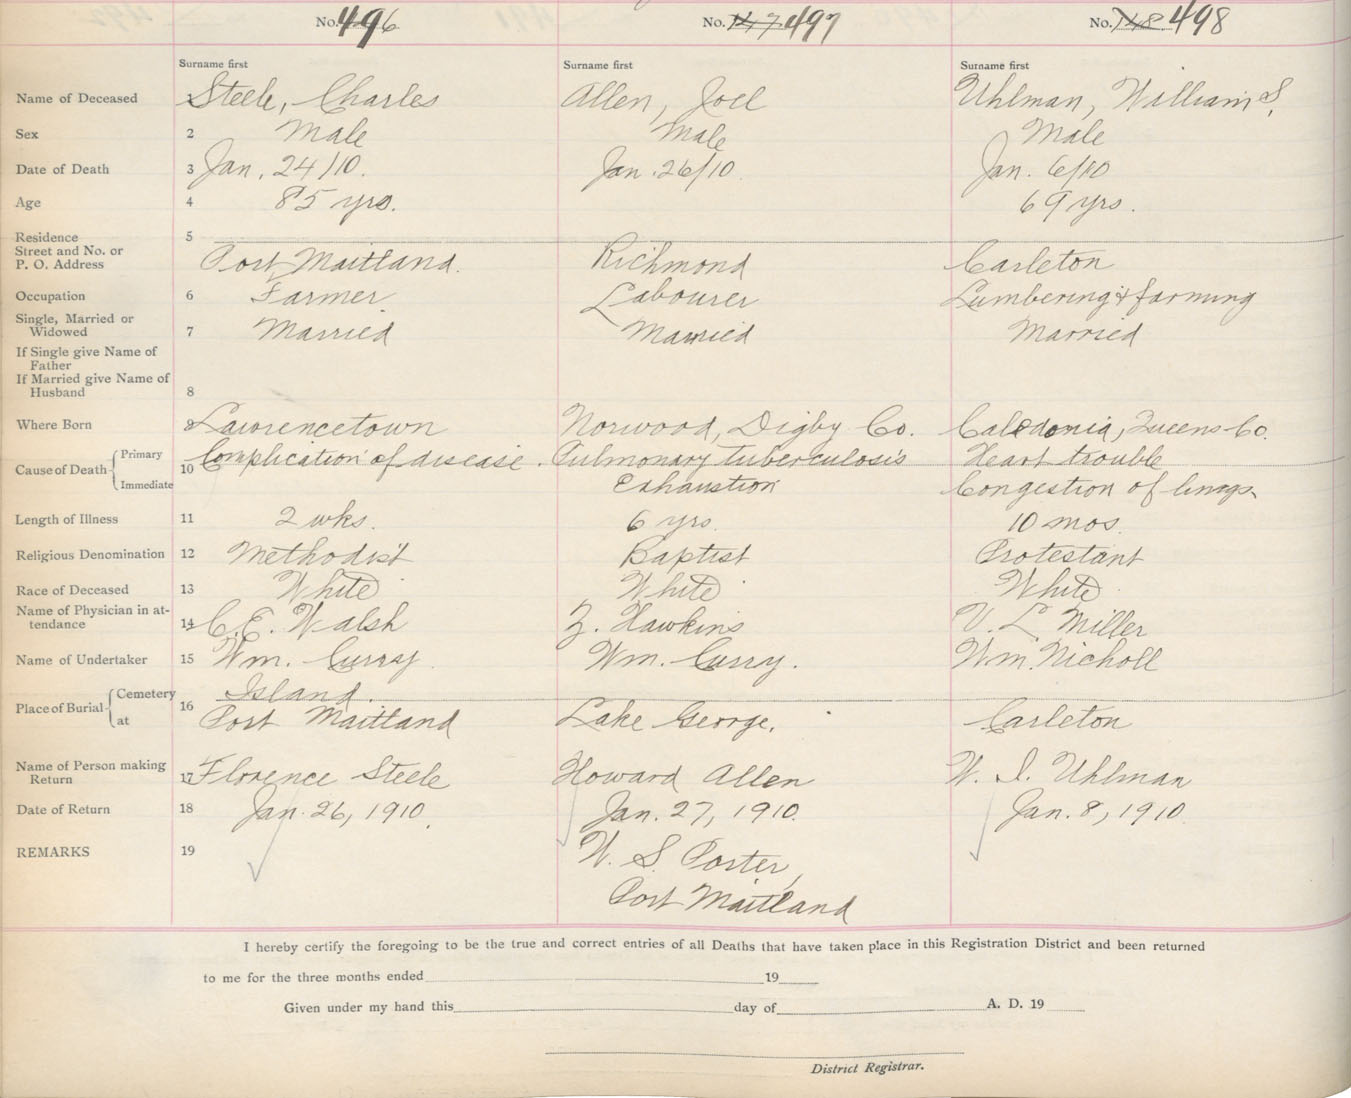 No. 496 No. 147 497 No. 148 498
Surname first Surname first Surname first
Name of Deceased 1 Steele, Charles Allen, Joel Uhlman, William S.
Sex 2 Male Male Male
Date of Death 3 Jan. 24/10. Jan. 26/10 Jan. 6/10
Age 4 85 yrs. 69 yrs.
Residence 5
Street and No. or
P. O. Address Port Maitland. Richmond Carleton
Occupation 6 Farmer Labourer Lumbering & farming
Single, Married or
Widowed 7 Married Married Married
If Single give Name of
Father
If Married give Name of
Husband 8
Where Born 9 Lawrencetown Norwood, Digby Co. Caledonia, Queens Co.
Cause of Death Primary 10 Complication of disease. Pulmonary tuberculosis Heart trouble
Immediate Exhaustion Congestion of lungs
Length of Illness 11 2 wks. 6 yrs. 10 mos.
Religious Denomination 12 Methodist Baptist Protestant
Race of Deceased 13 White White White
Name of Physician in at-
tendance 14 C. E. Walsh Z. Hawkins V. L. Miller
Name of Undertaker 15 Wm. Curry Wm. Curry. Wm. Nicholl
Place of Burial Cemetery 16 Island.
at Port Maitland Lake George. Carleton
Name of Person making
Return 17 Florence Steele Howard Allen W. I. Uhlman
Date of Return 18 Jan. 26, 1910. Jan. 27, 1910. Jan. 8, 1910
REMARKS 19 W. S. Porter,
Port Maitland
I hereby certify the foregoing to be the true and correct entries of all Deaths that have taken place in this Registration District and been returned
to me for the three months ended 19
Given under my hand this day of A. D. 19
District Registrar.